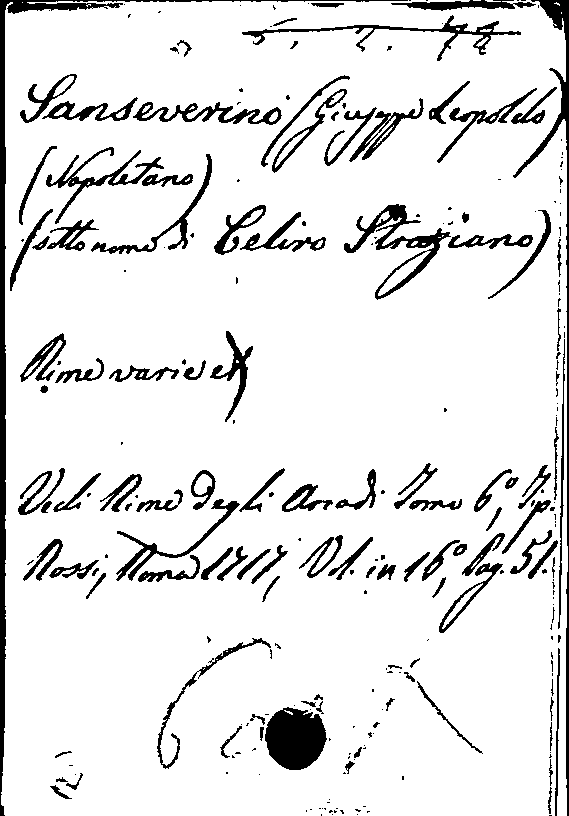 Sanseverino (Giuseppe Leopoldo)
(Napoletano)
(sotto nome di Celiro Straziano)
Rime varie
Vedi Rime degli Arcadi Tomo 6º, Tip.
Rossi, Roma 1717, Vol. in 16º, Pag. 51.